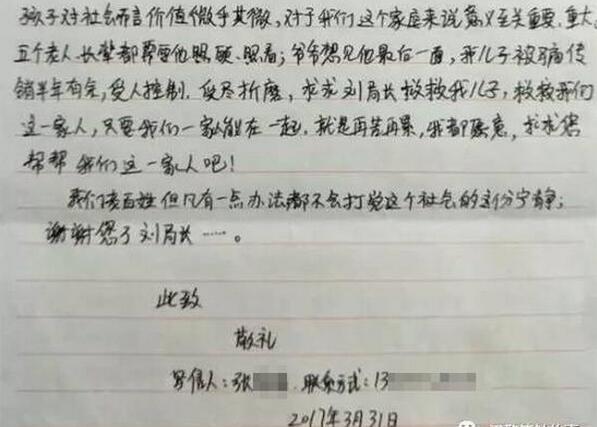 孩子对社会而言价值微乎其微，对于我们这个家庭来说意义至关重要、重大。
五个老人、长辈都需要他照顾、照看；爷爷想见他最后一面，我儿子被骗传
销半年有余，受人控制、受尽折磨，求求刘局长救救我儿子，救救我们
这一家人，只要我们一家能在一起，就是再苦再累，我都愿意，求求您
帮帮我们这一家人吧！
我们老百姓但凡有一点办法都不会打觉这个社会的这份宁静；
谢谢您了刘局长……。
此致
敬礼
写信人：张 联系方式：13
2017年3月31日